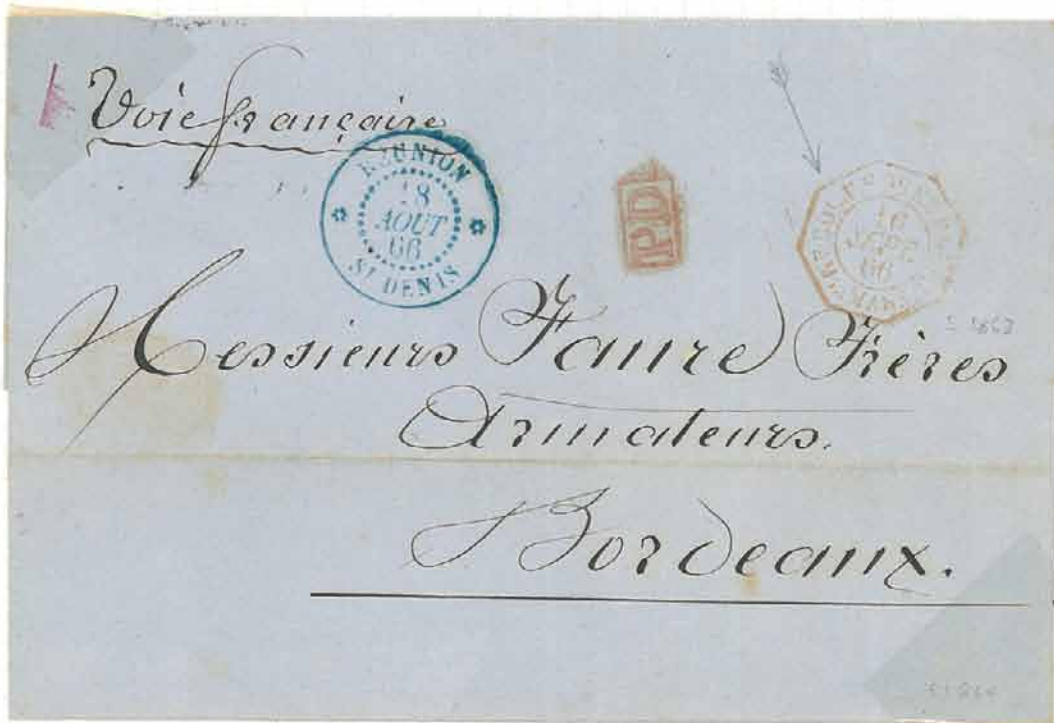 Voie française
RÉUNION
18
AOUT
66
ST DENIS
PD
16
SEPT
66
Messieurs Faure Frères
Armateurs.
Bordeaux.